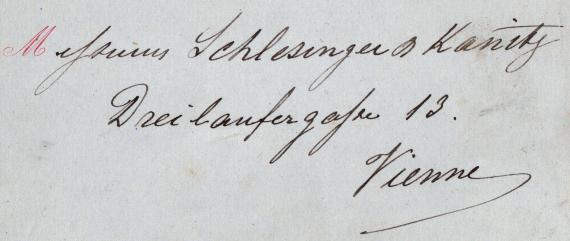 Messieurs Schlesinger & Kanitz
Dreilaufergasse 13.
Vienne